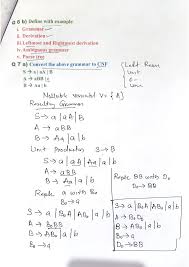 Q 6 b) Define with example
i. Grammar
ii. Derivation
iii. Leftmost and Rightmost derivation
iv. Ambiguous grammar
v. Parse tree
Q 7 a) Convert the above grammar to CNF
S → a | aA | B
A → aBB | ε
B → Aa | b
Left
Unit
Nullable variable V = {A}
Resulting Grammar
S → a | aA | B
A → aBB
B → Aa | a | b
Unit production S → B
S → a | aA | Aa | b
A → aBB
B → Aa | a | b
Replace a with B₀
B₀ → a
S → a | B₀A | AB₀ | b
A → B₀BB
B → AB₀ | a | b
B₀ → a
Replace BB with D₀
D₀ → BB
S → a | B₀A | AB₀ | b
A → B₀D₀
B → AB₀ | a | b
B₀ → a
D₀ → BB